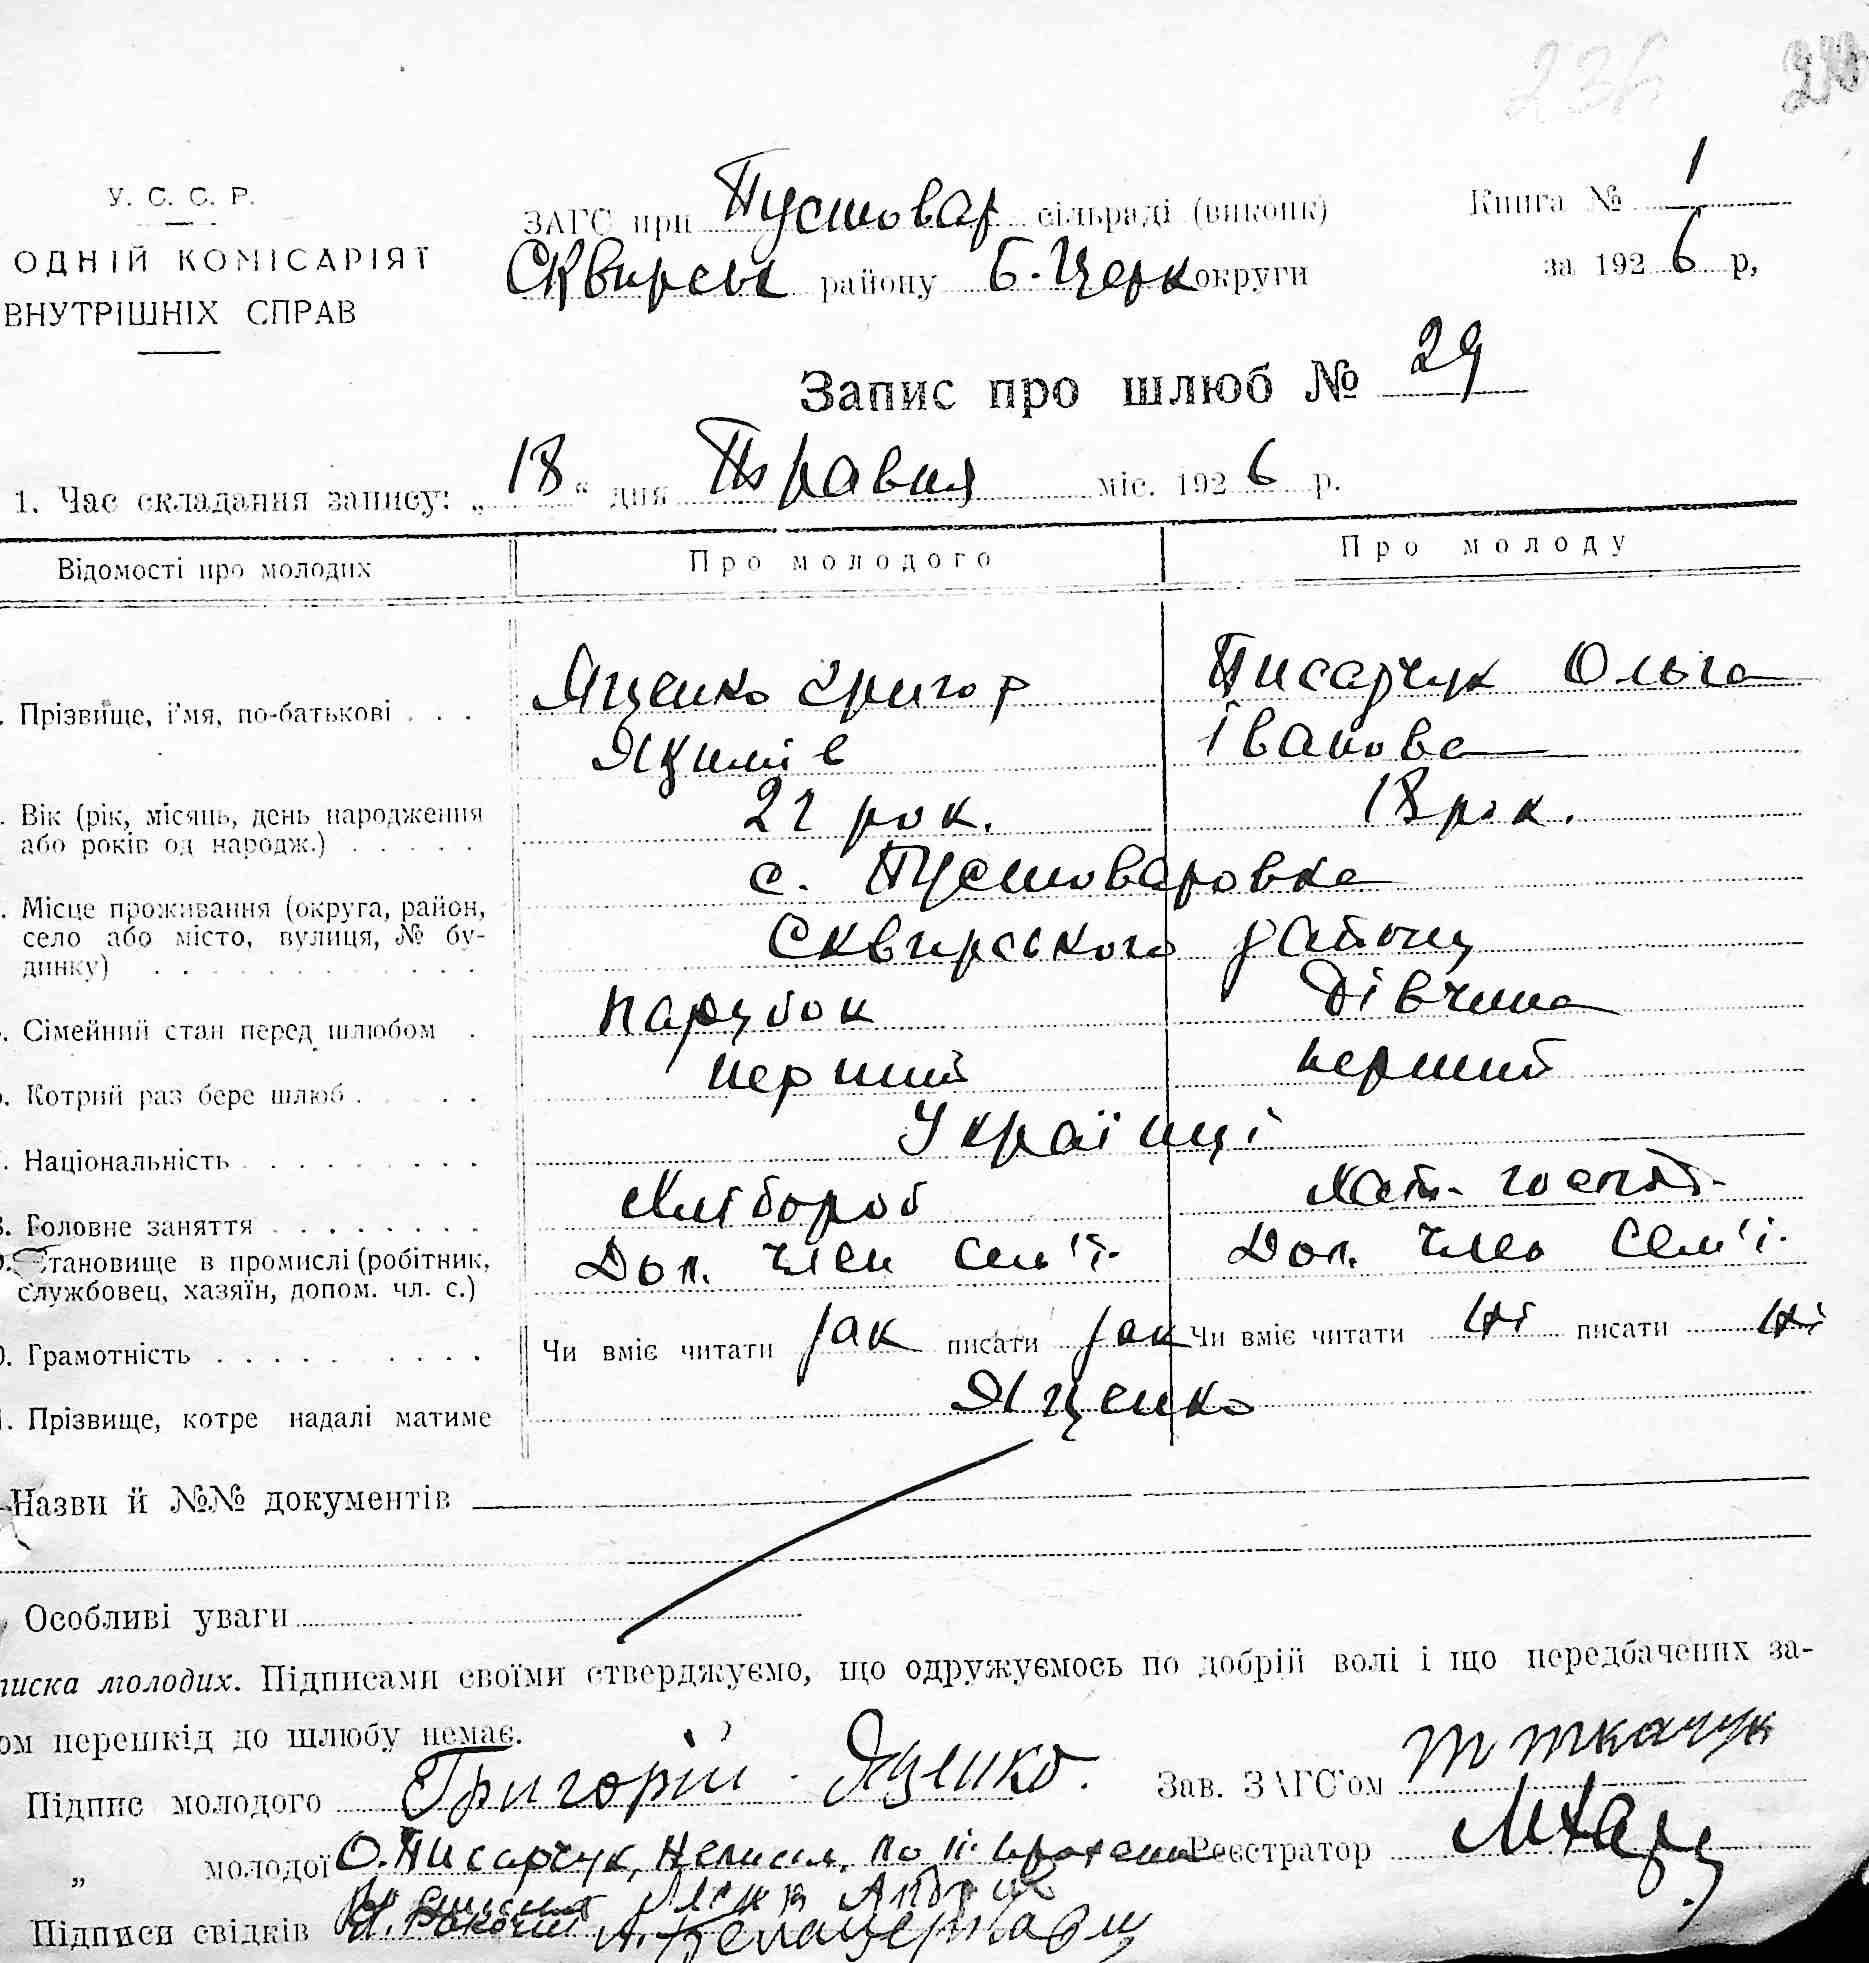 У. С. С. Р.
ОДНІЙ КОМІСАРІЯТ
ВНУТРІШНІХ СПРАВ
ЗАГС при Пустовар сільраді (виконк)
Сквирськ району Б. Церк округи
Книга № 1
за 1926 р,
Запис про шлюб № 29
1. Час складання запису: „18“ дня Травня міс. 1926 р.
Відомості про молодих Про молодого Про молоду
Прізвище, і'мя, по-батькові . . . Яценко Григор Писарчук Ольга
Якимів Іванова
Вік (рік, місяць, день народження
або років од народж.) . . . . . рок. 18 рок.
с. Пустоваровка
Місце проживання (округа, район,
село або місто, вулиця, № бу-
динку) Сквирського району
Сімейний стан перед шлюбом . парубок Дівчина
Котрий раз бере шлюб . . . . перший перший
Національність . . . . . . . . . Українці
8. Головне заняття . . . . . . . . Хлібороб Хатн. господ.
Становище в промислі (робітник,
службовец, хазяїн, допом. чл. с.) Доп. член сем'ї. Доп. член сем'ї.
0. Грамотність . . . . . . . . . Чи вміє читати так писати так Чи вміє читати ні писати ні
1. Прізвище, котре надалі матиме Яценко
Назви й №№ документів
Особливі уваги
писка молодих. Підписами своїми стверджуємо, що одружуємось по добрій волі і що передбачених за-
ом перешкід до шлюбу немає.
Підпис молодого Григорій Яценко. Зав. ЗАГС'ом Т Ткачук
„ молодої О. Писарчук, Неписм. по її
Реєстратор
Підписи свідків